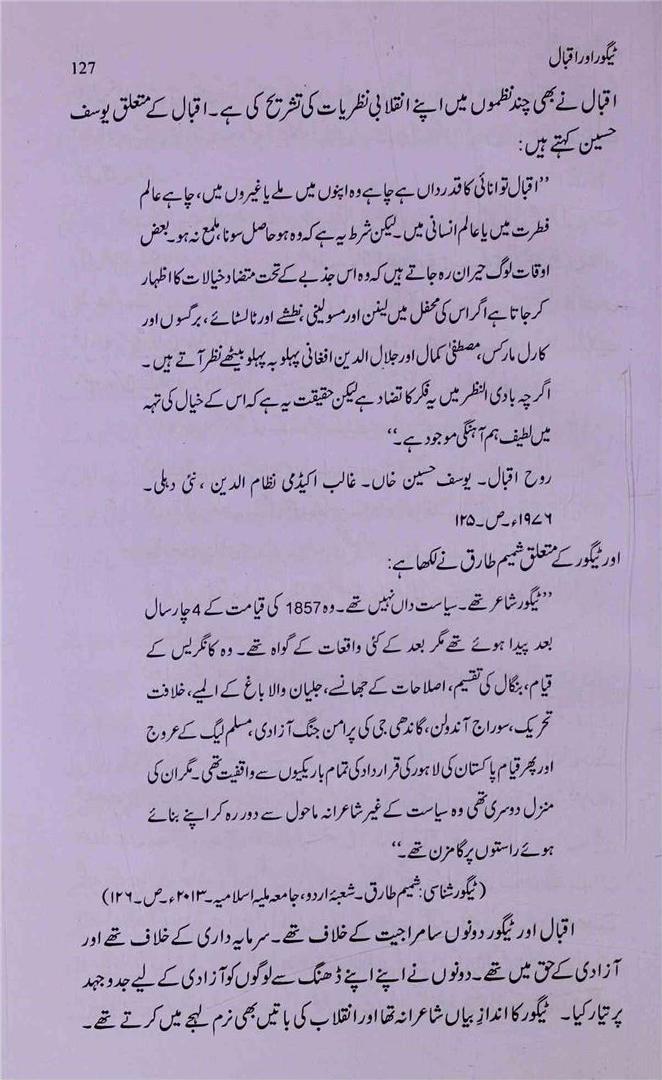 ٹیگور اور اقبال
127
اقبال نے بھی چند نظموں میں اپنے انقلابی نظریات کی تشریح کی ہے۔ اقبال کے متعلق یوسف
حسین کہتے ہیں:
’’اقبال توانائی کا قدرداں ہے چاہے وہ اپنوں میں ملے یا غیروں میں، چاہے عالم
فطرت میں یا عالم انسانی میں۔ لیکن شرط یہ ہے کہ وہ ہو حاصل سونا، ملمع نہ ہو۔ بعض
اوقات لوگ حیران رہ جاتے ہیں کہ وہ اس جذبے کے تحت متضاد خیالات کا اظہار
کر جاتا ہے اگر اس کی محفل میں لینن اور مسولینی، نطشے اور ٹالسٹائے، برگسوں اور
کارل مارکس، مصطفیٰ کمال اور جلال الدین افغانی پہلو بہ پہلو بیٹھے نظر آتے ہیں۔
اگرچہ بادی النظر میں یہ فکر کا تضاد ہے لیکن حقیقت یہ ہے کہ اس کے خیال کی تہہ
میں لطیف ہم آہنگی موجود ہے۔‘‘
روح اقبال۔ یوسف حسین خاں۔ غالب اکیڈمی نظام الدین ، نئی دہلی۔
۱۹۷۶ء۔ ص۔ ۱۲۵
اور ٹیگور کے متعلق شمیم طارق نے لکھا ہے:
’’ٹیگور شاعر تھے۔ سیاست داں نہیں تھے۔ وہ 1857 کی قیامت کے 4 چار سال
بعد پیدا ہوئے تھے مگر بعد کے کئی واقعات کے گواہ تھے۔ وہ کانگریس کے
قیام، بنگال کی تقسیم، اصلاحات کے جھانسے، جلیان والا باغ کے المیے، خلافت
تحریک، سوراج آندولن، گاندھی جی کی پرامن جنگ آزادی، مسلم لیگ کے عروج
اور پھر قیام پاکستان کی لاہور کی قرارداد کی تمام باریکیوں سے واقفیت تھی۔ مگر ان کی
منزل دوسری تھی وہ سیاست کے غیر شاعرانہ ماحول سے دور رہ کر اپنے بنائے
ہوئے راستوں پر گامزن تھے۔‘‘
(ٹیگور شناسی: شمیم طارق۔ شعبۂ اردو، جامعہ ملیہ اسلامیہ۔ ۲۰۱۳ء۔ ص۔ ۱۲۶)
اقبال اور ٹیگور دونوں سامراجیت کے خلاف تھے۔ سرمایہ داری کے خلاف تھے اور
آزادی کے حق میں تھے۔ دونوں نے اپنے اپنے ڈھنگ سے لوگوں کو آزادی کے لیے جدوجہد
پر تیار کیا۔ ٹیگور کا انداز بیاں شاعرانہ تھا اور انقلاب کی باتیں بھی نرم لہجے میں کرتے تھے۔